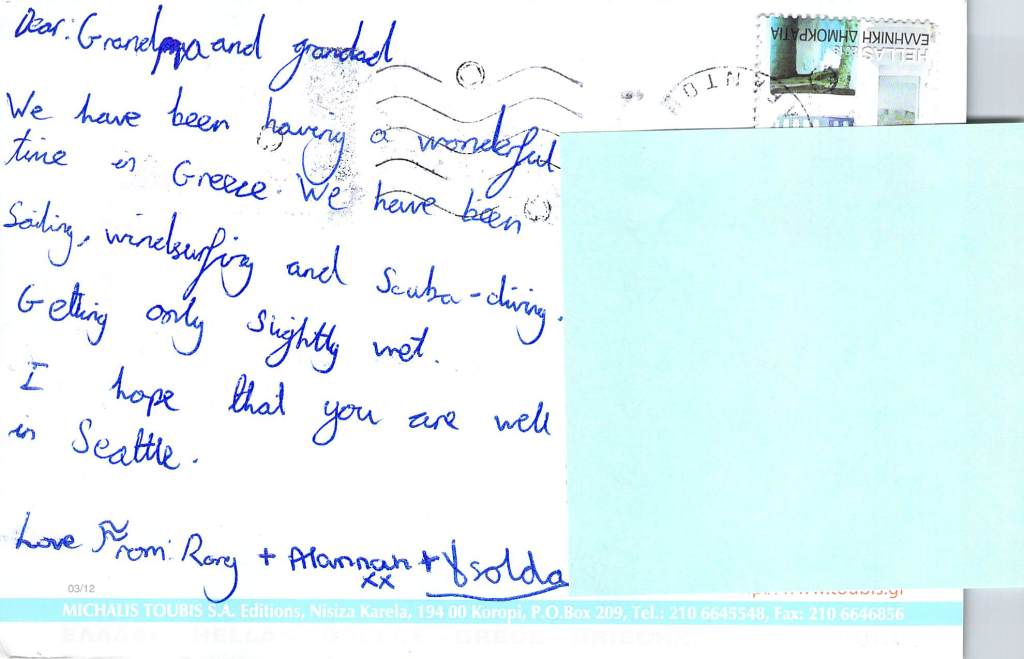 Dear: Grandpa and grandad
We have been having a wonderful
time in Greece. We have been
Sailing, windsurfing and Scuba-diving.
Getting only slightly wet.
I hope that you are well
in Seattle.
Love From: Rory + Alannah + Ysolda
xx
ΕΛΛΗΝΙΚΗ ΔΗΜΟΚΡΑΤΙΑ
HELLAS
03/12
MICHALIS TOUBIS S.A. Editions, Nisiza Karela, 194 00 Koropi, P.O.Box 209, Tel.: 210 6645548, Fax: 210 6646856